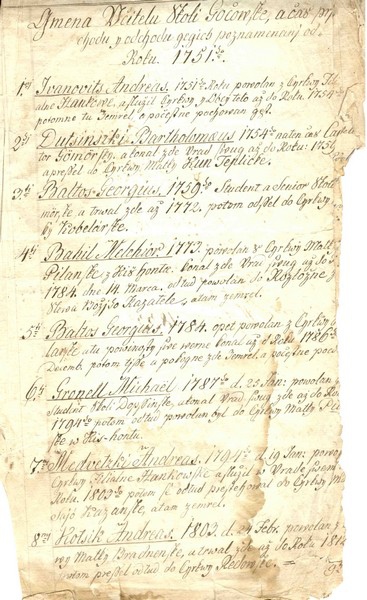 Gmena Učitelu Školi Gočowske, a čas pří
chodu y odchodu gegich poznamenaný od
Roku. 1751ho
1ní Ivanovits Andreas. 1751ho Roku powolan z Cyrkwy
Hankowe, a slúžil Cyrkwy y Obcy teto až do Roku. 1754ho
potomne tu Zemrel a počestne pochowan gest.
2hý Dutsinszki Bartholomæus 1754ho naten čas
tor Gömörsky, a konal zde Vrad swug až do Roku: 1759
a pressel do Cyrkwy Mattky Kun Teplicke.
3tí Baltos Georgius, 1759ho Student a Senior Školi
a trwal zde až 1772. potom odssel do Cyrkwy
Kobelarske.
4tý Babil Melchior 1773. powolan z Cyrkwy Matky
z Kishontu. konal zde Vrad swug až do
1784. dne 14. Marca. odtud powolan do Rozlozne
Slowa Božjho Kazatele, a tam zemrel.
5tý Baltos Georgius. 1784. opet powolan z Cyrkwy
a tu powinosty swe werne konal až do Roku 1786ho
Decemb. potom tjde a pologne zde Zemrel, a počestne poch
6tý Grenell Michael 1787ho d. 25 Jan: powolan
Student Školi Dopssinske, a konal Vrad swug zde až do Roku
1794ho potom odtud powolan byl do Cyrkwy Matky
w Kis-hontu.
7mý Medvetzki Andreas. 1794ho d. 19 Jan: powo
Cyrkwy Filialne Hankowske a slúžil w Vrade swem
Roku. 1803ho potom se odtud presstehowal do Cyrkwy
Kazanske, a tam zemrel.
8mý Kotsik Andreas. 1803 d. 24 Febr. powolan z
Matky Bradnenske, a trwal zde až do Roku 1812
potom pressel odtud do Cyrkwy Redowske